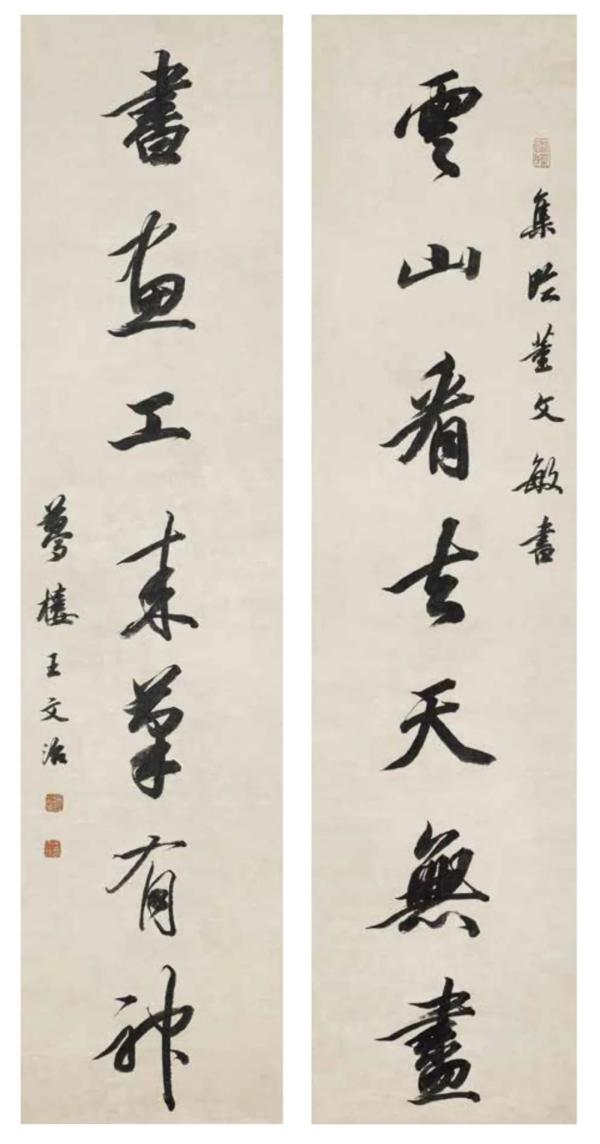 集臨董文敏書
雲山看去天無盡
書畫工来筆有神
夢樓王文治